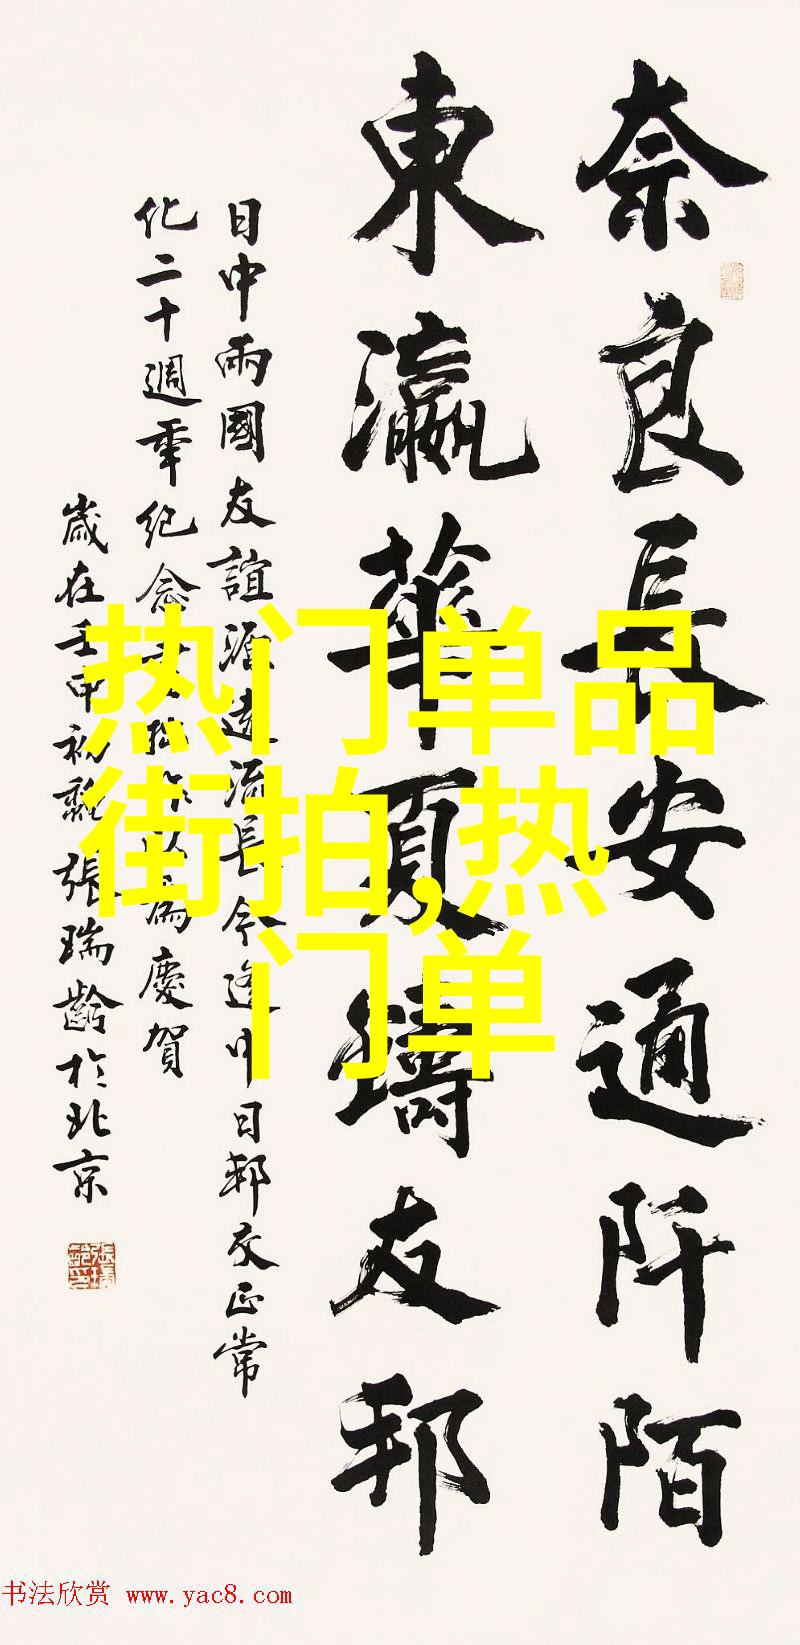 奈良長安通阡陌
東瀛華夏鑄友邦
日中兩國友誼源遠流長今逢中日邦交正常
化二十週年紀念
以為慶賀
歲在壬申初 張瑞齡於北京
热门单品
街拍,热
门单
书法欣赏 www.yac8.com